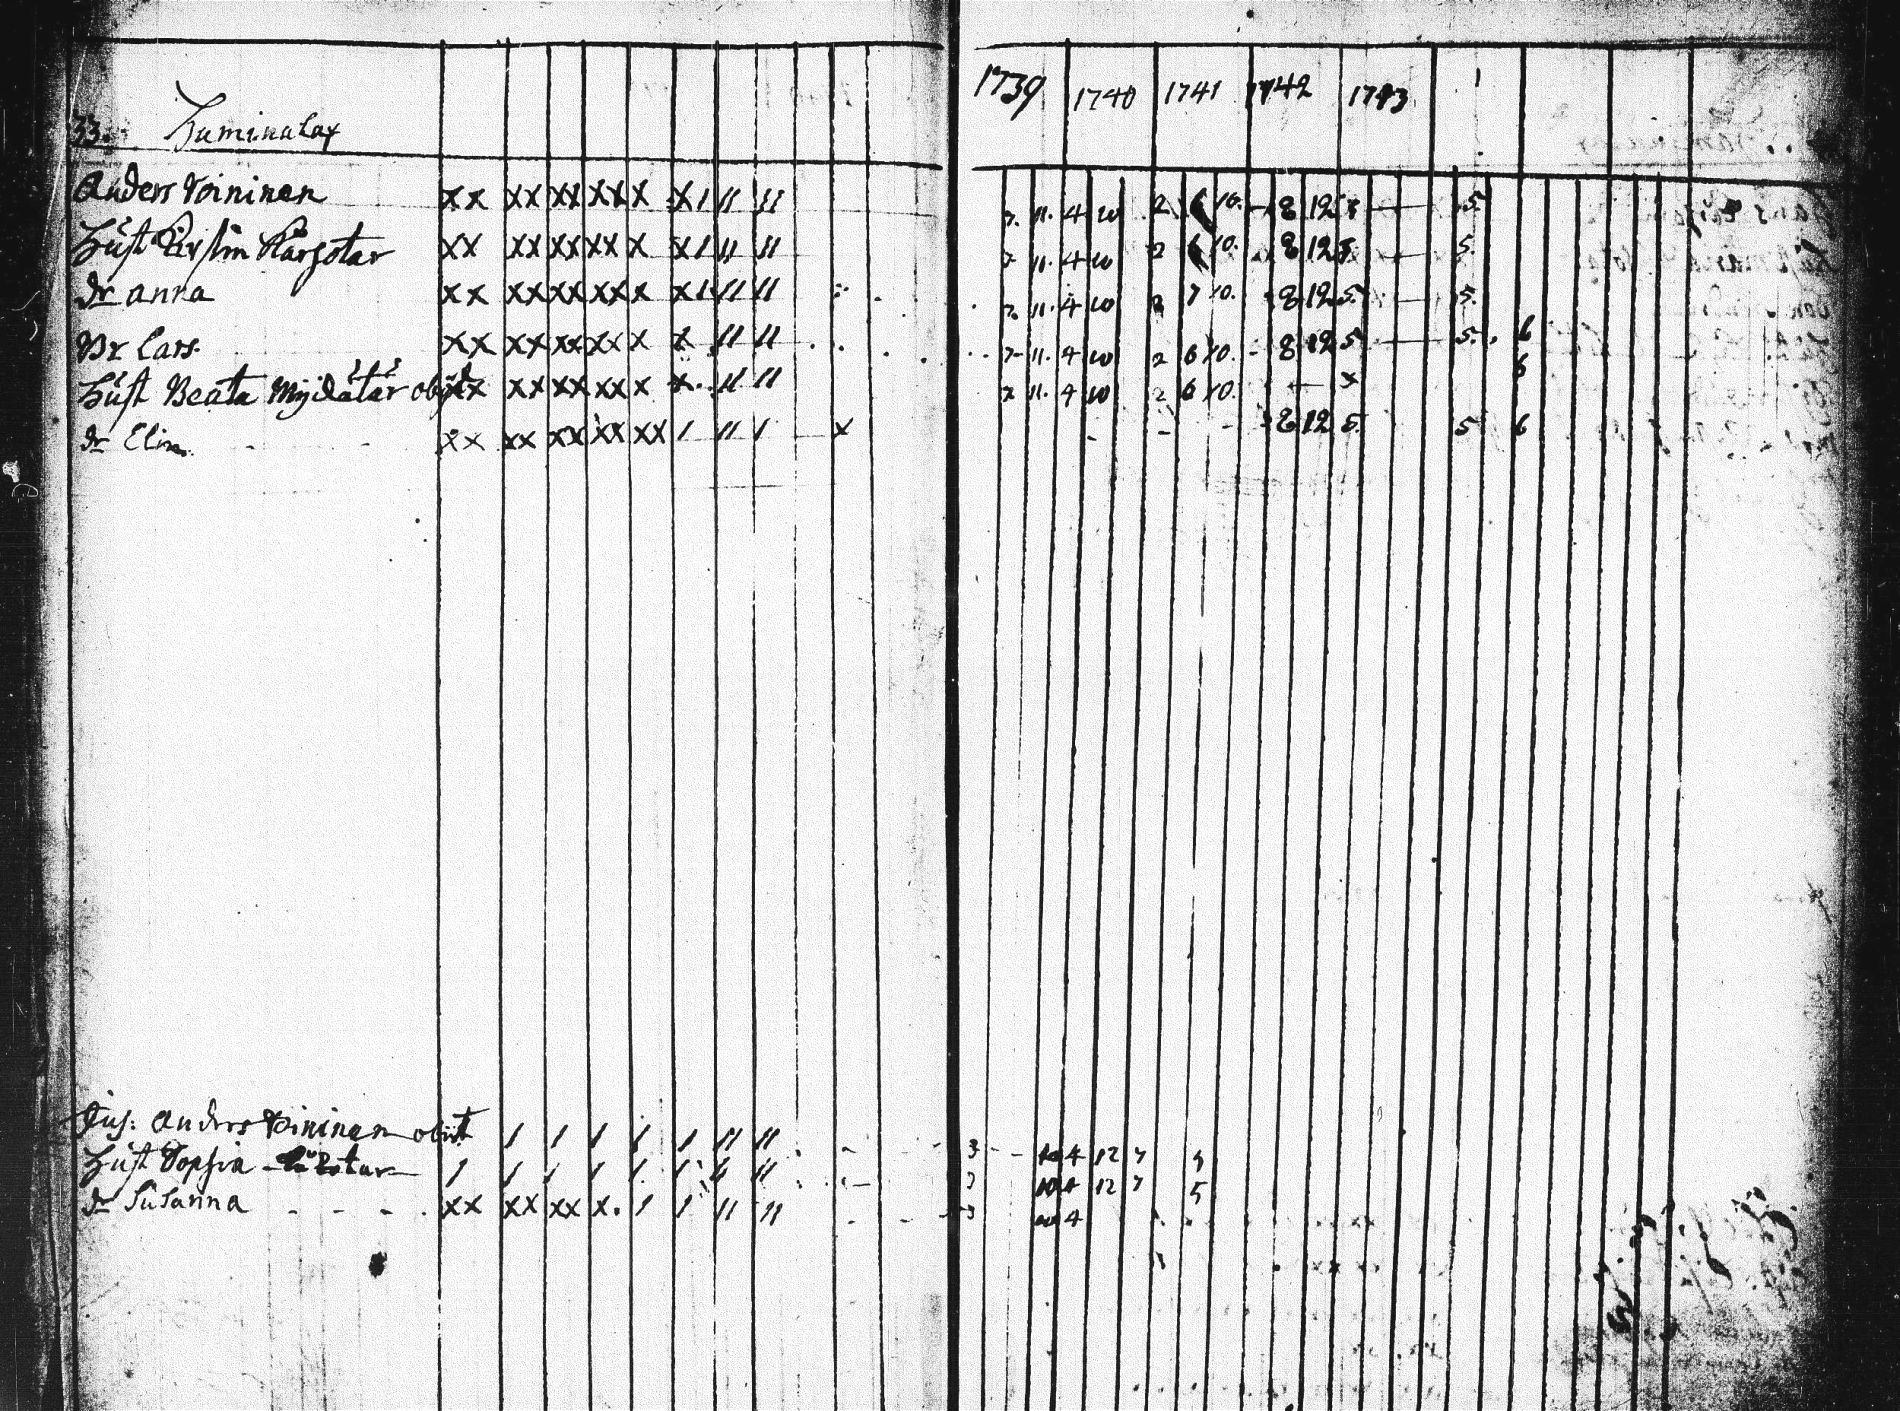 1739 1740 1741 1742 1743
33. Huminalax
Anders Toininen xx xx xx xx x x 1 11 11 7. 11. 4 10 2 6 10. - 8 12 5.
Hust Kirstin Kärgötar xx xx xx xx x x 1 11 11 7 11. 4 10 2 6 10. 8 12 5.
dr anna xx xx xx xx x x 1 11 11 7. 11. 4 10 2 7 10. 8 12 5. - 5.
Br Lars. xx xx xx xx x x 11 11 7 11. 4 10 2 6 10. - 8 12 5 - 5. 6
Hust Beata obijt xx xx xx x x 11 11 7 11. 4 10 2 6 10. - x 6
dr Elin - - xx xx xx xx xx 1 11 1 x - - - 8 12 5. 5 6
Anders Toininen obiit 1 1 1 1 1 11 11 3 4 12 7
Hust Sophia 1 1 1 1 1 1 11 12 7 5
dr Susanna - - - xx xx xx x. 1 1 11 11 3 4